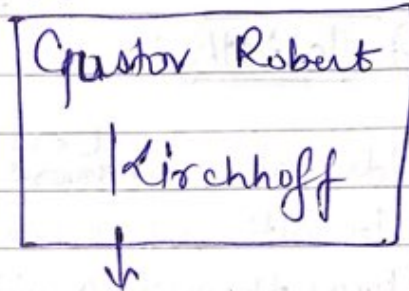 Gustov Robert
Kirchhoff